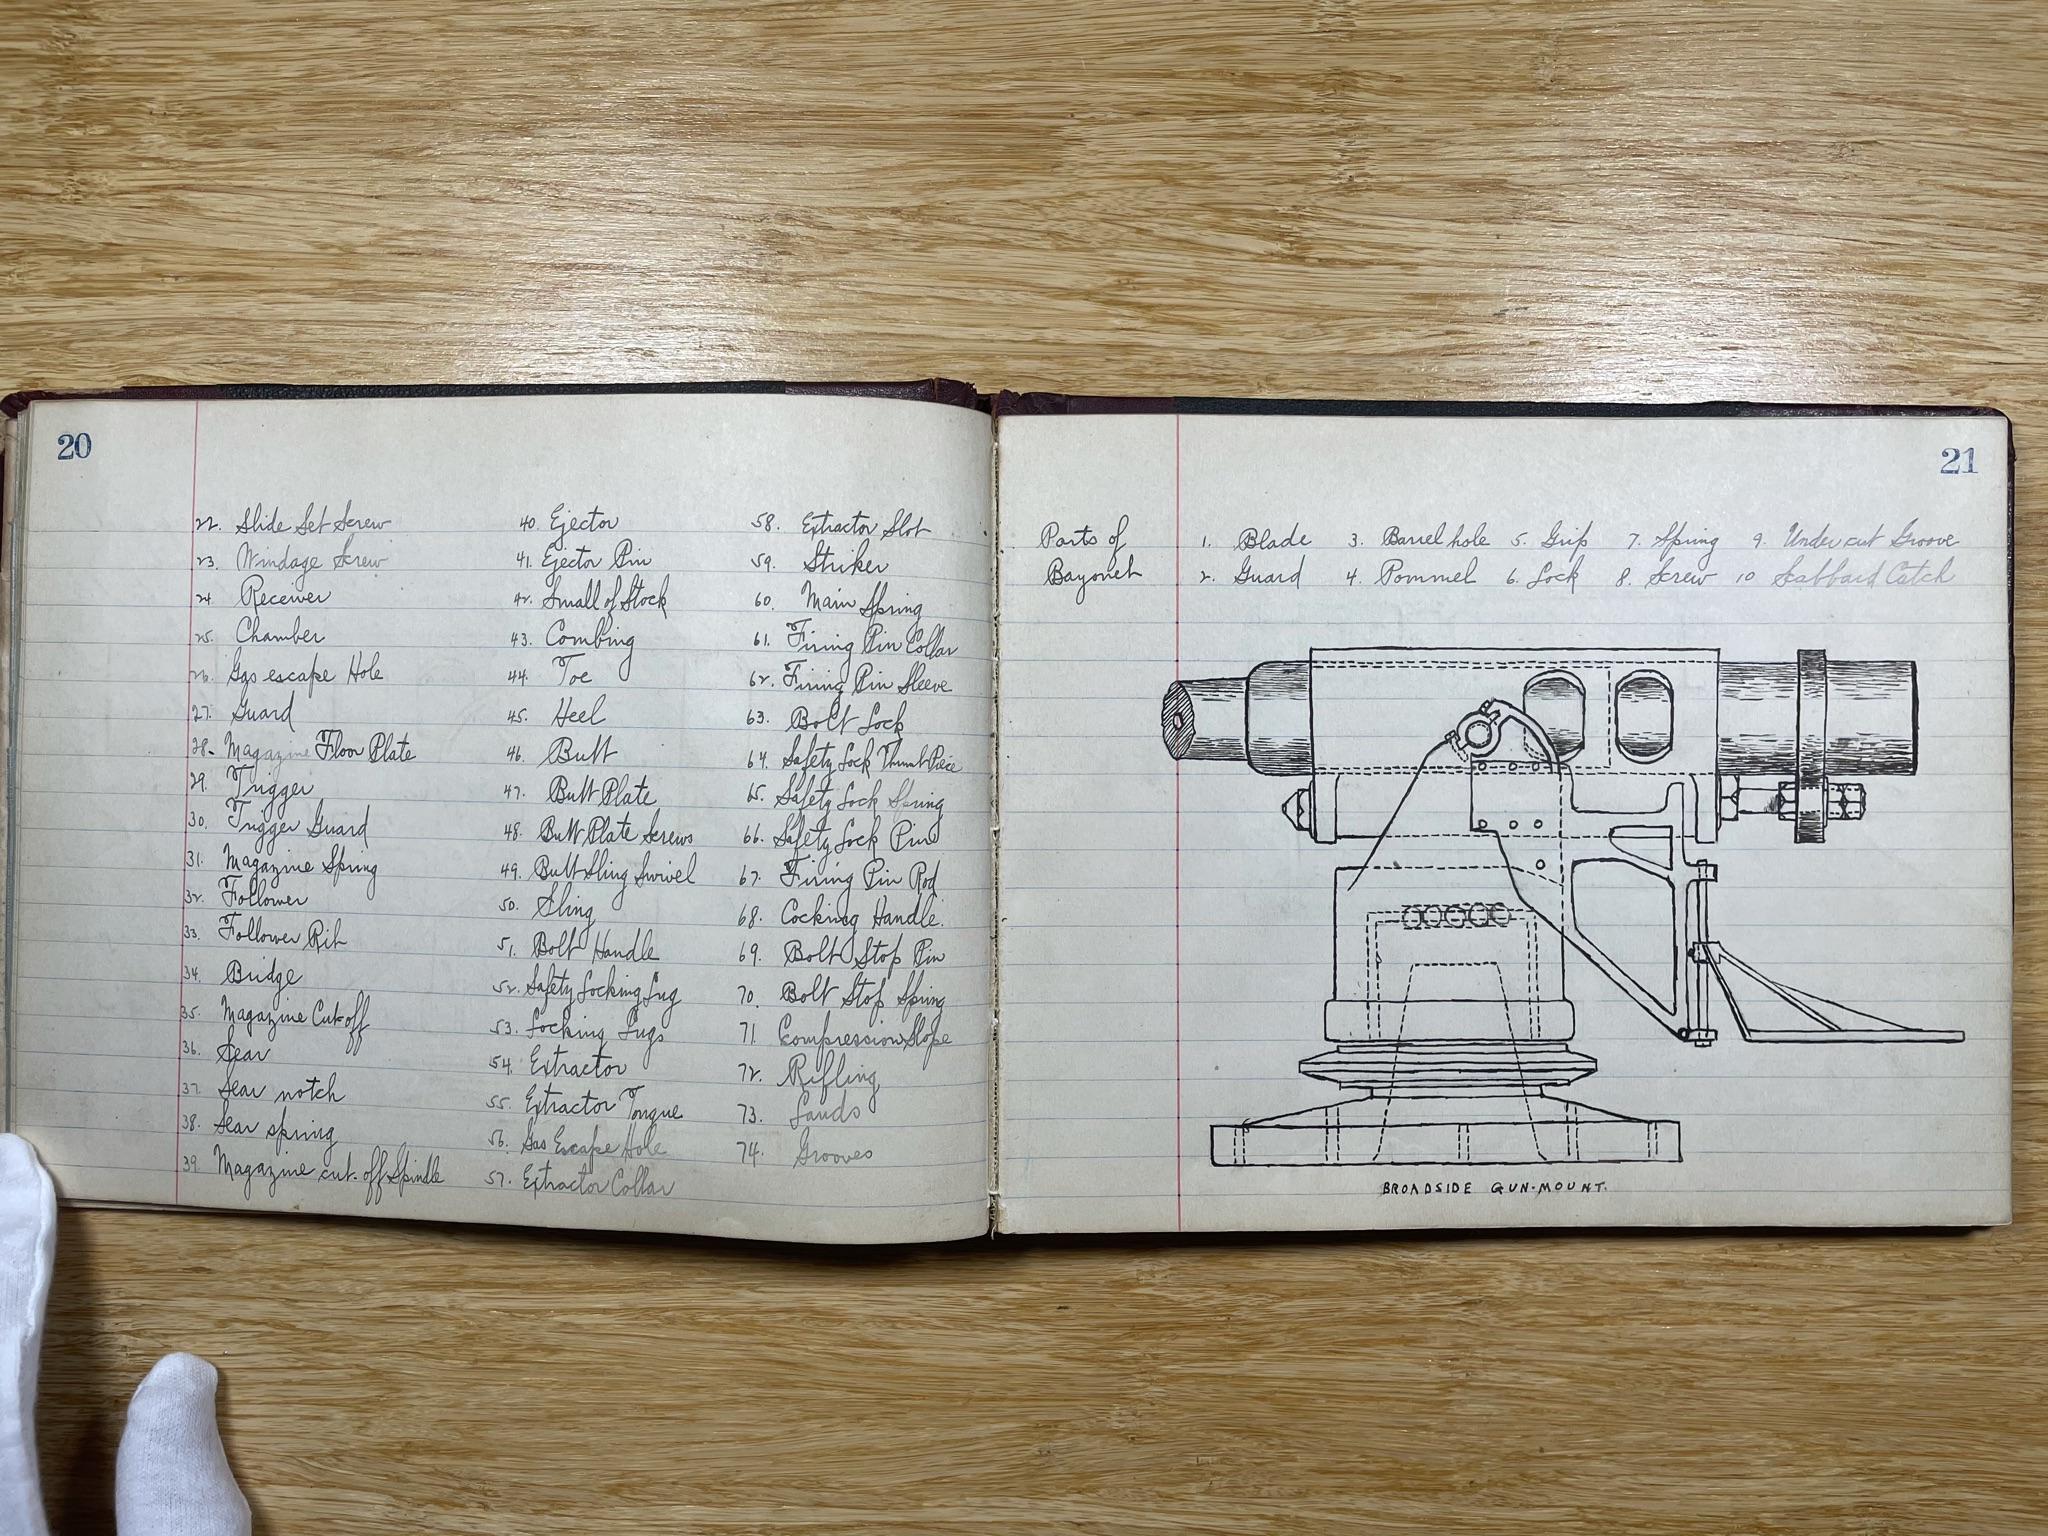 20
22. Slide Set Screw
23. Windage Screw
24 Receiver
25. Chamber
26. Gas escape Hole
27. Guard
28- Magazine Floor Plate
29. Trigger
30. Trigger Guard
31. Magazine Spring
32. Follower
33. Follower Rib
34. Bridge
35. Magazine Cut off
36. Sear
37. Sear notch
38. Sear spring
39. Magazine cut-off Spindle
40. Ejector
41. Ejector Pin
42. Small of Stock
43. Combing
44. Toe
45. Heel
46. Butt
47. Butt Plate
48. Butt Plate Screws
49. Butt Sling Swivel
50. Sling
51. Bolt Handle
52. Safety Locking Lug
53. Locking Lugs
54. Extractor
55. Extractor Tongue
56. Gas Escape Hole
57. Extractor Collar
58. Extractor Slot
59. Striker
60. Main Spring
61. Firing Pin Collar
62. Firing Pin Sleeve
63. Bolt Lock
64. Safety Lock Thumb Piece
65. Safety Lock Spring
66. Safety Lock Pin
67. Firing Pin Rod
68. Cocking Handle.
69. Bolt Stop Pin
70. Bolt Stop Spring
71. Compression Slope
72. Rifling
73. Lands
74. Grooves
21
Parts of Bayonet
1. Blade 3. Barrel hole 5. Grip 7. Spring 9. Under cut Groove
2. Guard 4. Pommel 6. Lock 8. Screw 10 Scabbard Catch
BROADSIDE GUN-MOUNT.